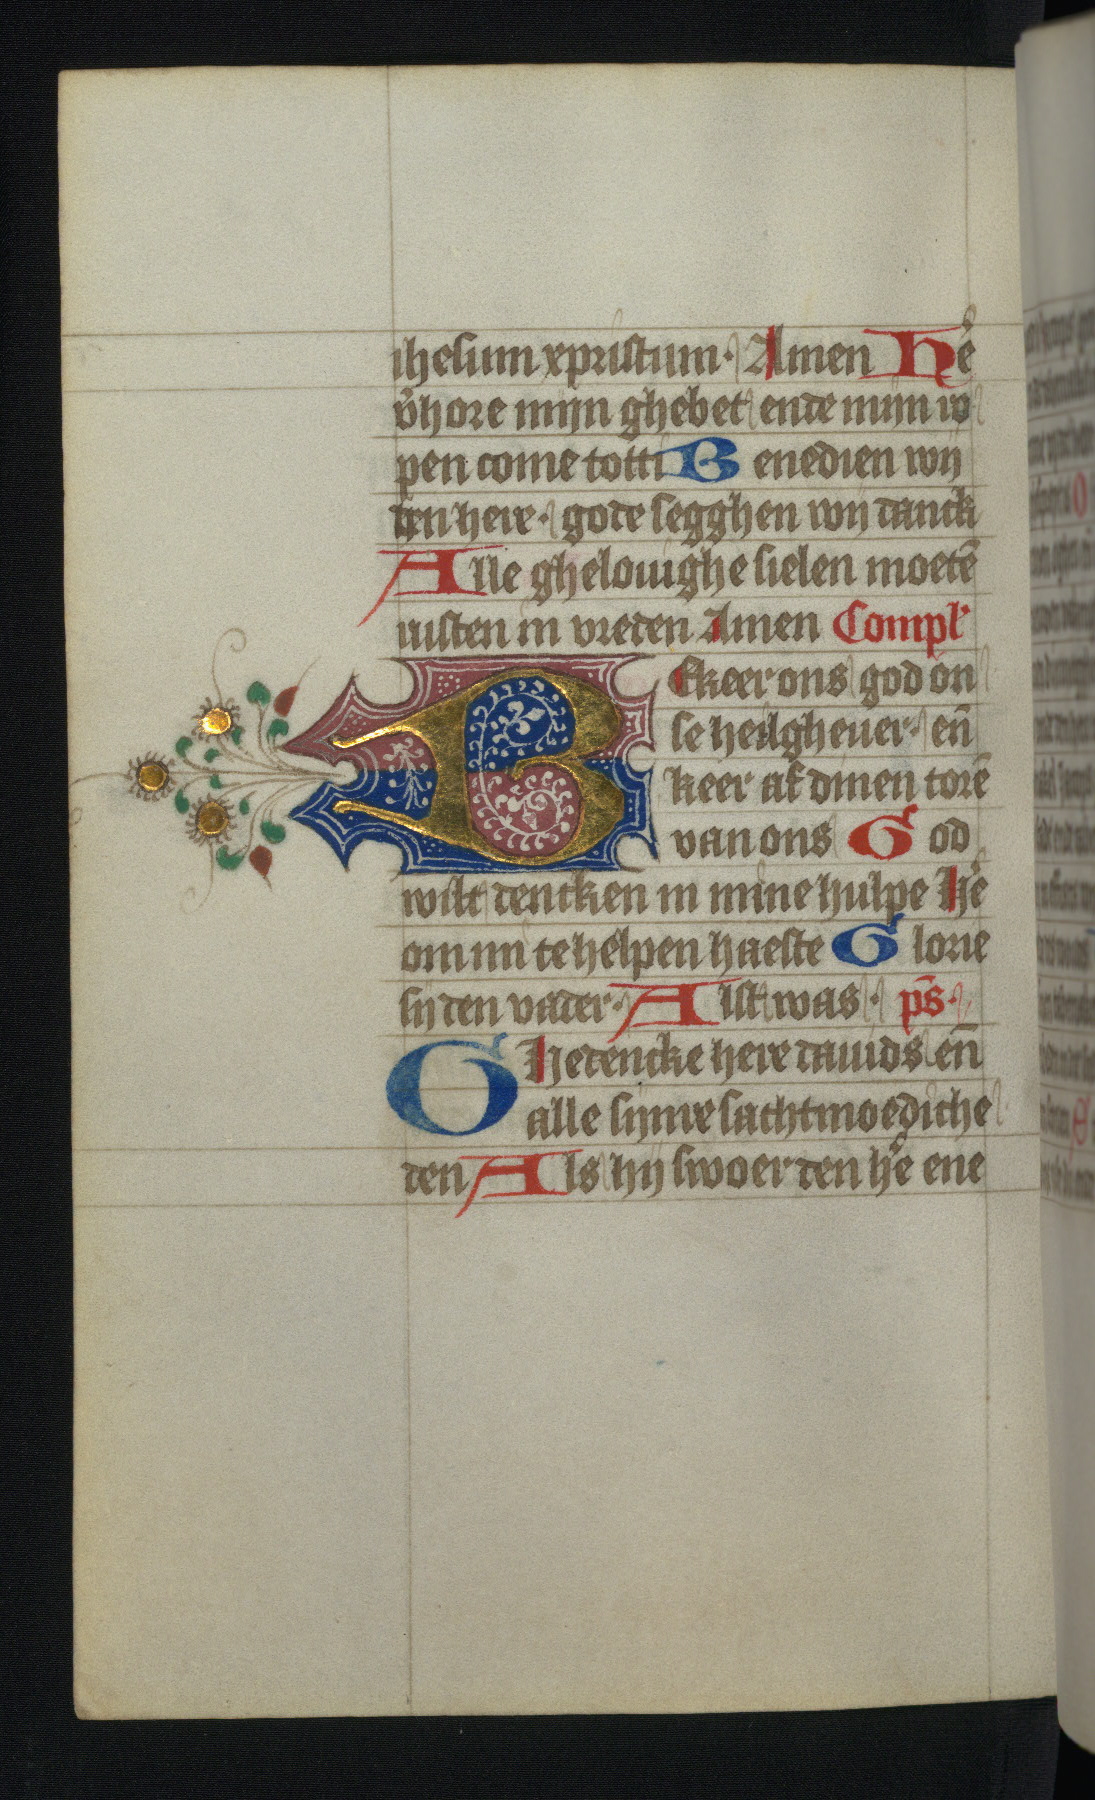 ihesum xpristum · Amen He᷒
v̄hore mijn ghebet ende mijn ro
pen come totti Benedien wij
den here · gode segghen wij danck
Alle ghelouighe sielen moetē
rusten in vreden Amen Compl'
Bekeer ons god on
se heilgheuer · en̄
keer af dinen torē
van ons God
wilt dencken in mine hulpe He᷒
om mi te helpen haeste Glorie
sij den vader · Alst was · ps̄ ·
Ghedencke here dauids en̄
alle sijnre sachtmoediche
den Als hij swoer den he᷒ ene